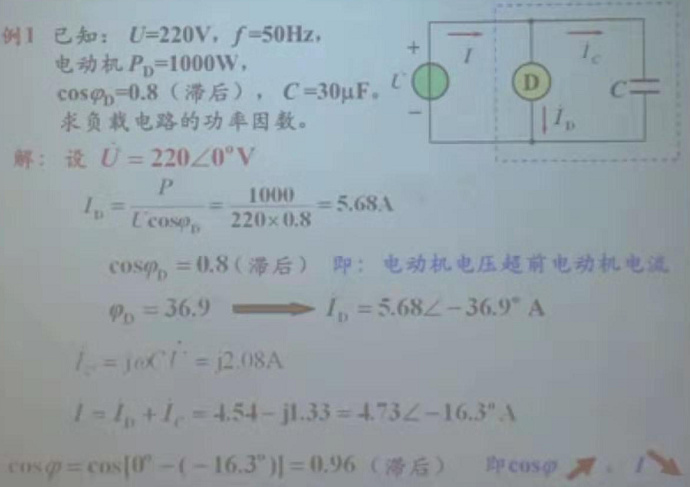 例1 已知： U=220V，f=50Hz，
电动机 P_D=1000W，
cosφ_D=0.8（滞后），C=30μF。
求负载电路的功率因数。
+ U − İ D İ_D İ_C C
解：设 U̇ = 220∠0°V
I_D = P / (Ucosφ_D) = 1000 / (220×0.8) = 5.68A
cosφ_D = 0.8（滞后） 即：电动机电压超前电动机电流
φ_D = 36.9 → İ_D = 5.68∠−36.9° A
İ_C = jωC U̇ = j2.08A
İ = İ_D + İ_C = 4.54 − j1.33 = 4.73∠−16.3° A
cosφ = cos[0° − (−16.3°)] = 0.96 （滞后） 即cosφ ↗ ，I ↘